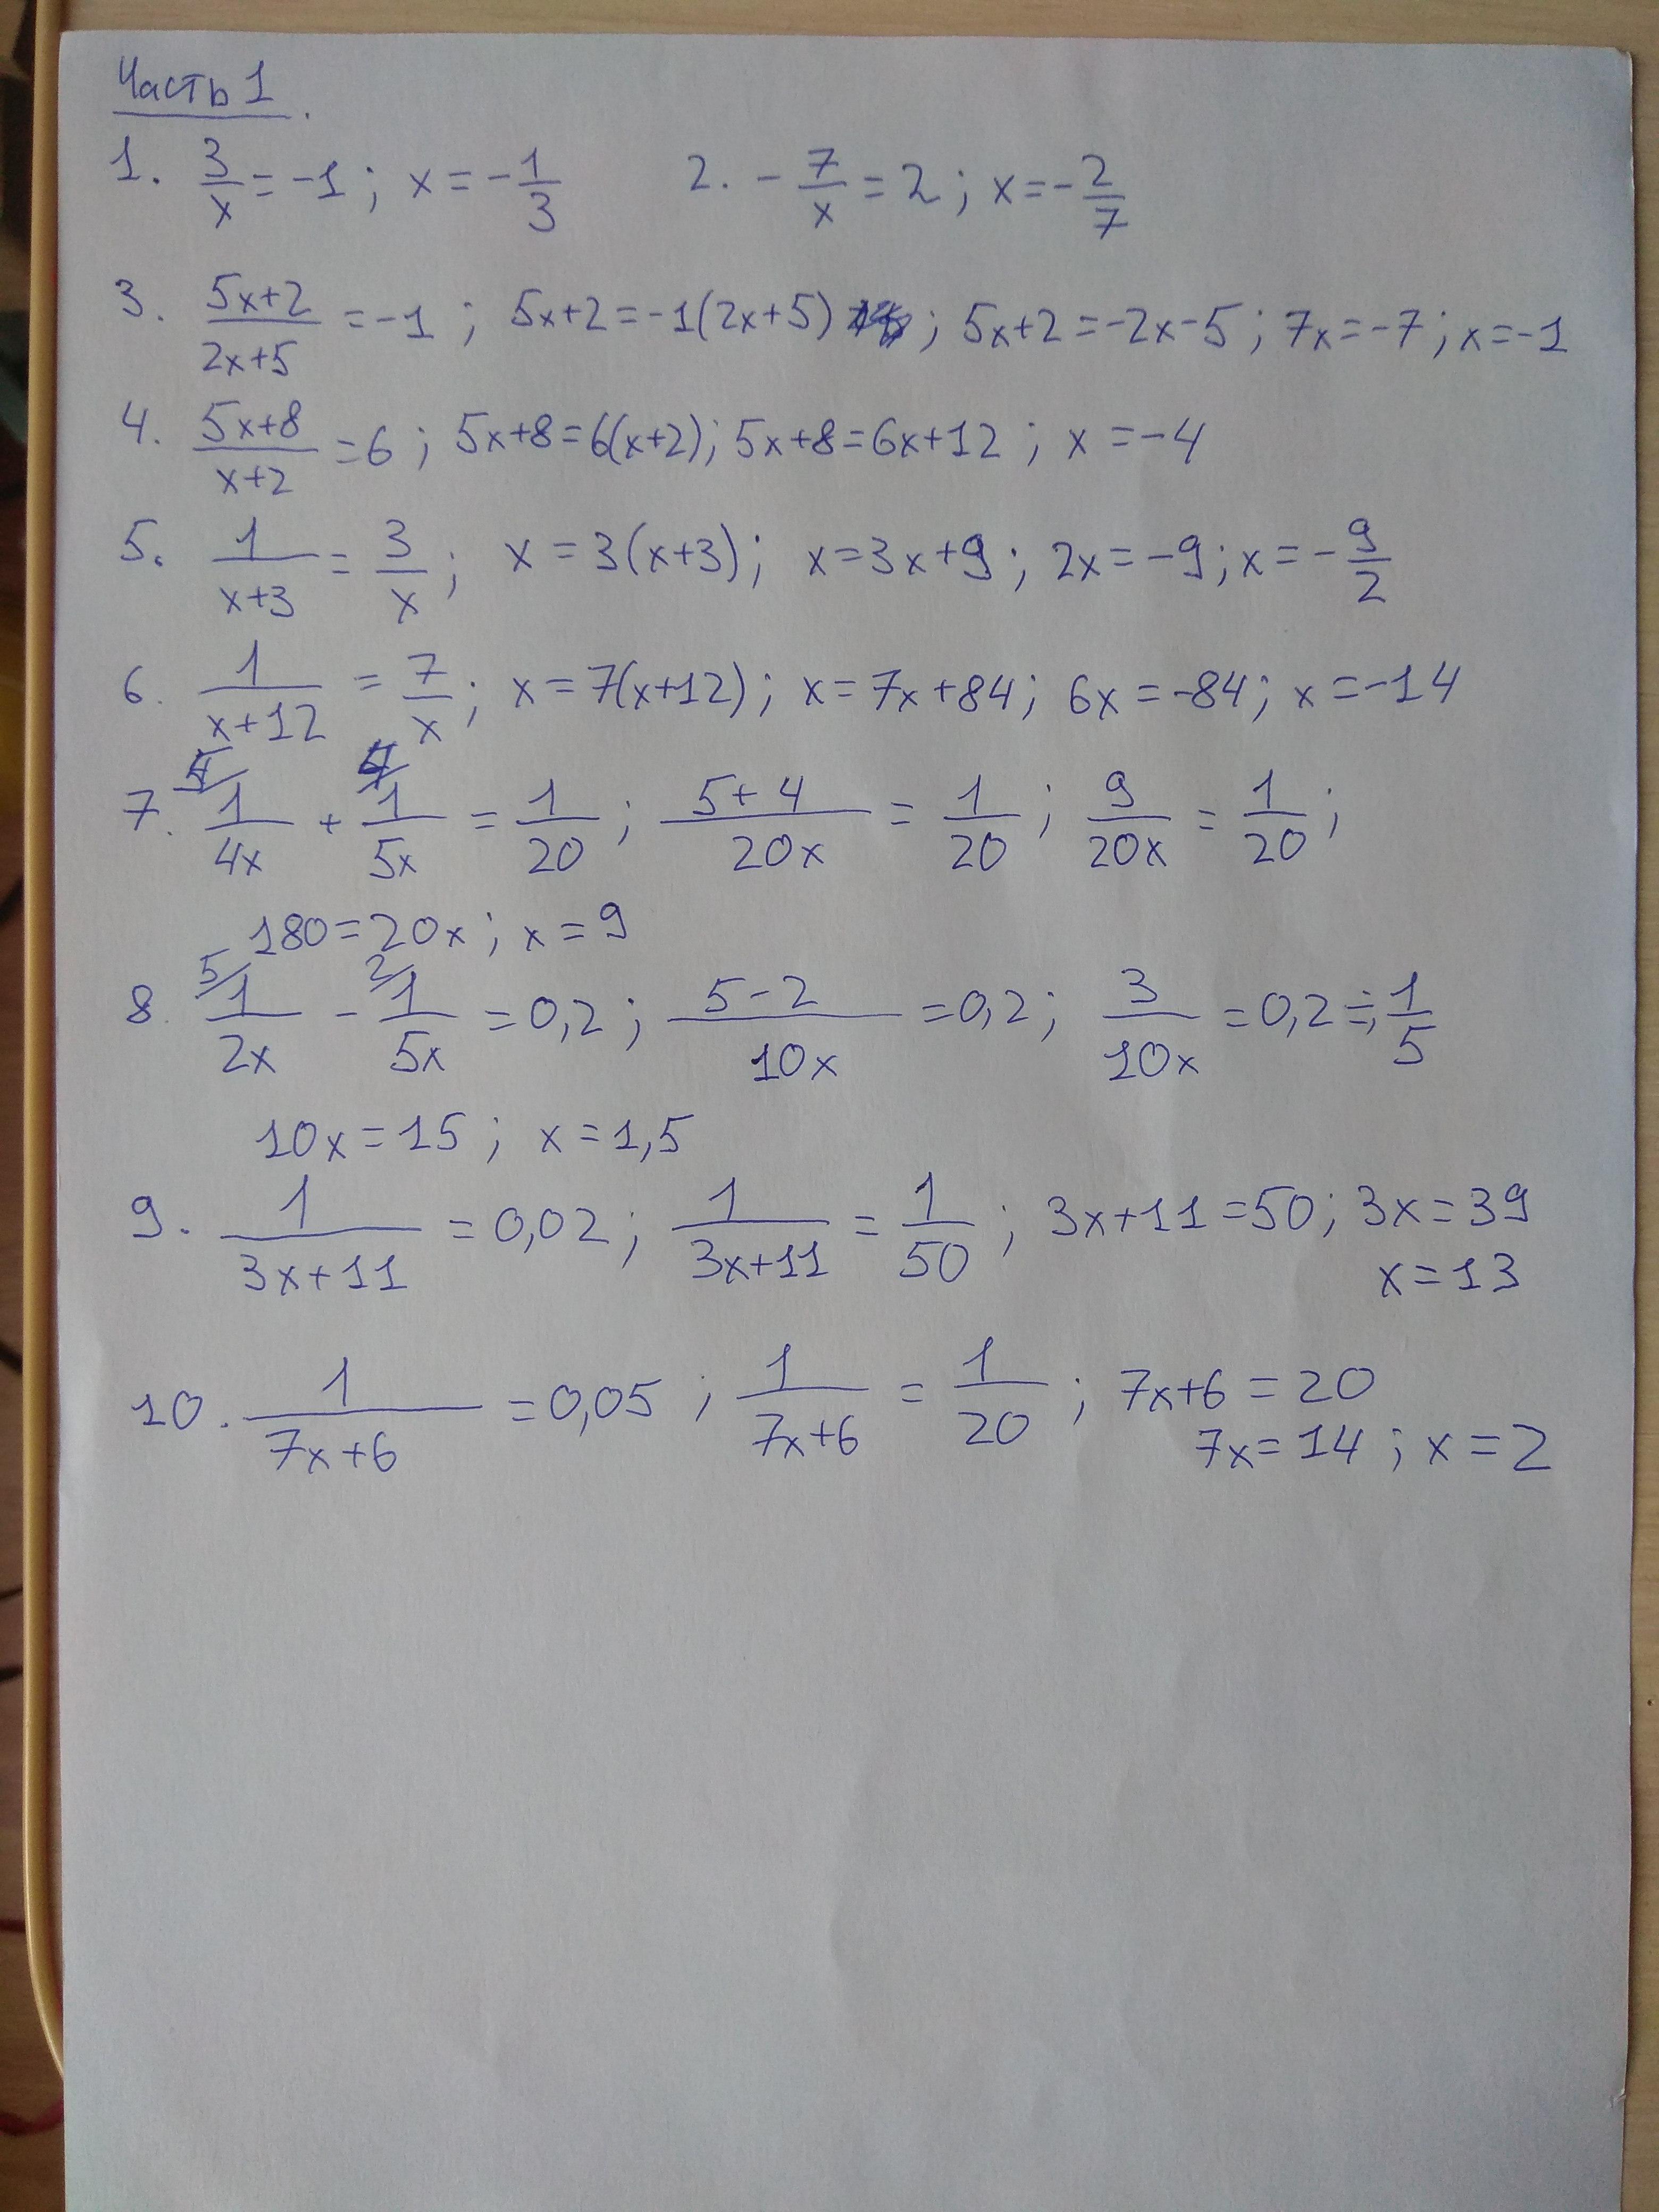 Часть 1.
1. 3/x = -1; x = -1/3 2. -7/x = 2; x = -2/7
3. (5x+2)/(2x+5) = -1; 5x+2 = -1(2x+5); 5x+2 = -2x-5; 7x = -7; x = -1
4. (5x+8)/(x+2) = 6; 5x+8 = 6(x+2); 5x+8 = 6x+12; x = -4
5. 1/(x+3) = 3/x; x = 3(x+3); x = 3x+9; 2x = -9; x = -9/2
6. 1/(x+12) = 7/x; x = 7(x+12); x = 7x+84; 6x = -84; x = -14
7. 5/ 1/4x + 4/ 1/5x = 1/20; (5+4)/20x = 1/20; 9/20x = 1/20;
180 = 20x; x = 9
8. 5/ 1/2x - 2/ 1/5x = 0,2; (5-2)/10x = 0,2; 3/10x = 0,2 = 1/5;
10x = 15; x = 1,5
9. 1/(3x+11) = 0,02; 1/(3x+11) = 1/50; 3x+11 = 50; 3x = 39
x = 13
10. 1/(7x+6) = 0,05; 1/(7x+6) = 1/20; 7x+6 = 20
7x = 14; x = 2